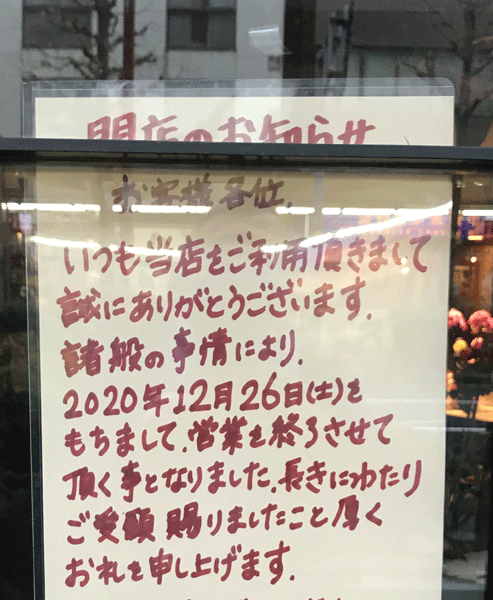 閉店のお知らせ
お客様各位.
いつも当店をご利用頂きまして
誠にありがとうございます.
諸般の事情により.
2020年12月26日(土)を
もちまして.営業を終了させて
頂く事となりました.長きにわたり
ご愛顧賜りましたこと厚く
お礼を申し上げます.